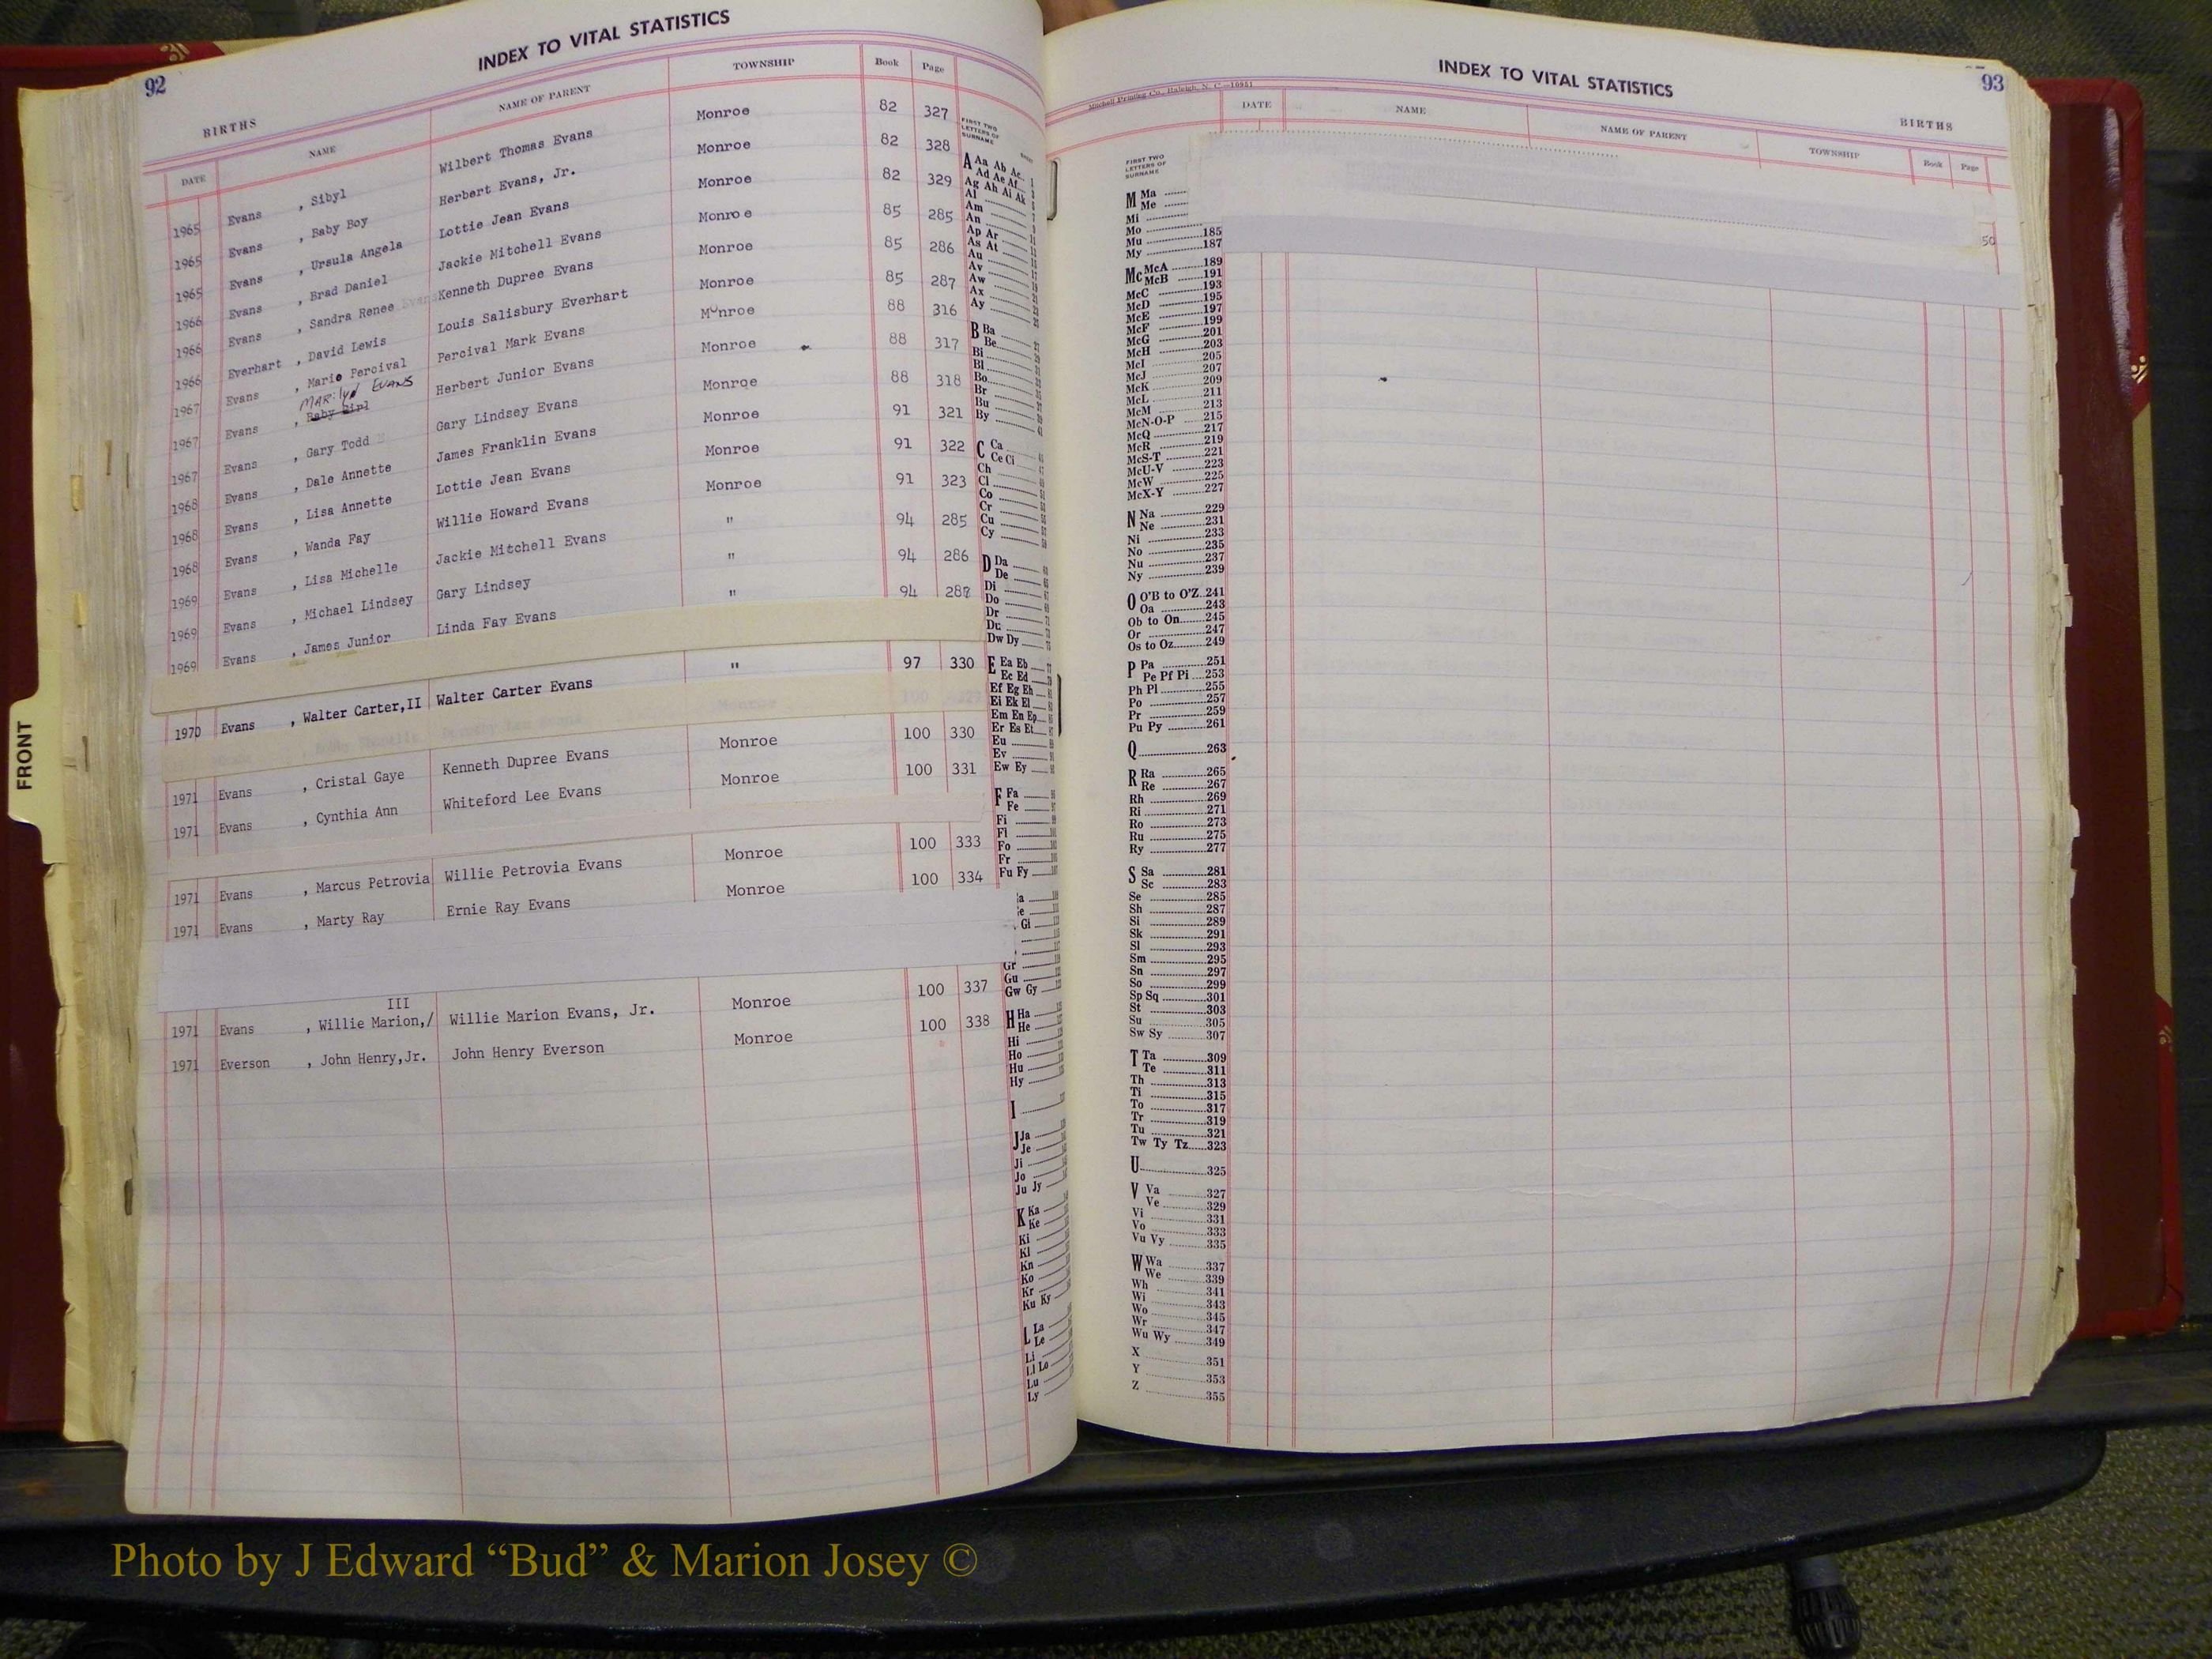 92
INDEX TO VITAL STATISTICS
BIRTHS
DATE NAME NAME OF PARENT TOWNSHIP Book Page
1965 Evans , Sibyl Wilbert Thomas Evans Monroe 82 327
1965 Evans , Baby Boy Herbert Evans, Jr. Monroe 82 328
1965 Evans , Ursula Angela Lottie Jean Evans Monroe 82 329
1966 Evans , Brad Daniel Jackie Mitchell Evans Monroe 85 285
1966 Evans , Sandra Renee Kenneth Dupree Evans Monroe 85 286
1966 Everhart , David Lewis Louis Salisbury Everhart Monroe 85 287
1967 Evans , Marie Percival Percival Mark Evans Monroe 88 316
MARilyn EVANS
1967 Evans , Baby Girl Herbert Junior Evans Monroe 88 317
1967 Evans , Gary Todd Gary Lindsey Evans Monroe 88 318
1968 Evans , Dale Annette James Franklin Evans Monroe 91 321
1968 Evans , Lisa Annette Lottie Jean Evans Monroe 91 322
1968 Evans , Wanda Fay Willie Howard Evans Monroe 91 323
1969 Evans , Lisa Michelle Jackie Mitchell Evans " 94 285
1969 Evans , Michael Lindsey Gary Lindsey " 94 286
1969 Evans , James Junior Linda Fay Evans " 94 287
1970 Evans , Walter Carter,II Walter Carter Evans " 97 330
1971 Evans , Cristal Gaye Kenneth Dupree Evans Monroe 100 330
1971 Evans , Cynthia Ann Whiteford Lee Evans Monroe 100 331
1971 Evans , Marcus Petrovia Willie Petrovia Evans Monroe 100 333
1971 Evans , Marty Ray Ernie Ray Evans Monroe 100 334
III
1971 Evans , Willie Marion,/ Willie Marion Evans, Jr. Monroe 100 337
1971 Everson , John Henry,Jr. John Henry Everson Monroe 100 338
FRONT
FIRST TWO
LETTERS OF
SURNAME
A Aa Ab Ac
Ad Ae Af
Ag Ah Ai Ak
Al
Am
An
Ap Ar
As At
Au
Av
Aw
Ax
Ay
B Ba
Be
Bi
Bl
Bo
Br
Bu
By
C Ca
Ce Ci
Ch
Cl
Co
Cr
Cu
Cy
D Da
De
Di
Do
Dr
Du
Dw Dy
E Ea Eb
Ec Ed
Ef Eg Eh
Ei Ek El
Em En Ep
Er Es Et
Eu
Ev
Ew Ey
F Fa
Fe
Fi
Fl
Fo
Fr
Fu Fy
Gi
Gr
Gu
Gw Gy
H Ha
He
Hi
Ho
Hu
Hy
I
J Ja
Je
Ji
Jo
Ju Jy
K Ka
Ke
Ki
Kl
Kn
Ko
Kr
Ku Ky
L La
Le
Li
Ll Lo
Lu
Ly
93
INDEX TO VITAL STATISTICS
Mitchell Printing Co., Raleigh, N. C.—16951
BIRTHS
DATE NAME NAME OF PARENT TOWNSHIP Book Page
50
FIRST TWO
LETTERS OF
SURNAME
M Ma
Me
Mi
Mo
Mu 185
My 187
Mc McA 189
McB 191
McC 193
McD 195
McE 197
McF 199
McG 201
McH 203
McI 205
McJ 207
McK 209
McL 211
McM 213
McN-O-P 215
McQ 217
McR 219
McS-T 221
McU-V 223
McW 225
McX-Y 227
N Na 229
Ne 231
Ni 233
No 235
Nu 237
Ny 239
O O'B to O'Z 241
Oa 243
Ob to On 245
Or 247
Os to Oz 249
P Pa 251
Pe Pf Pi 253
Ph Pl 255
Po 257
Pr 259
Pu Py 261
Q 263
R Ra 265
Re 267
Rh 269
Ri 271
Ro 273
Ru 275
Ry 277
S Sa 281
Sc 283
Se 285
Sh 287
Si 289
Sk 291
Sl 293
Sm 295
Sn 297
So 299
Sp Sq 301
St 303
Su 305
Sw Sy 307
T Ta 309
Te 311
Th 313
Ti 315
To 317
Tr 319
Tu 321
Tw Ty Tz 323
U 325
V Va 327
Ve 329
Vi 331
Vo 333
Vu Vy 335
W Wa 337
We 339
Wh 341
Wi 343
Wo 345
Wr 347
Wu Wy 349
X 351
Y 353
Z 355
Photo by J Edward “Bud” & Marion Josey ©